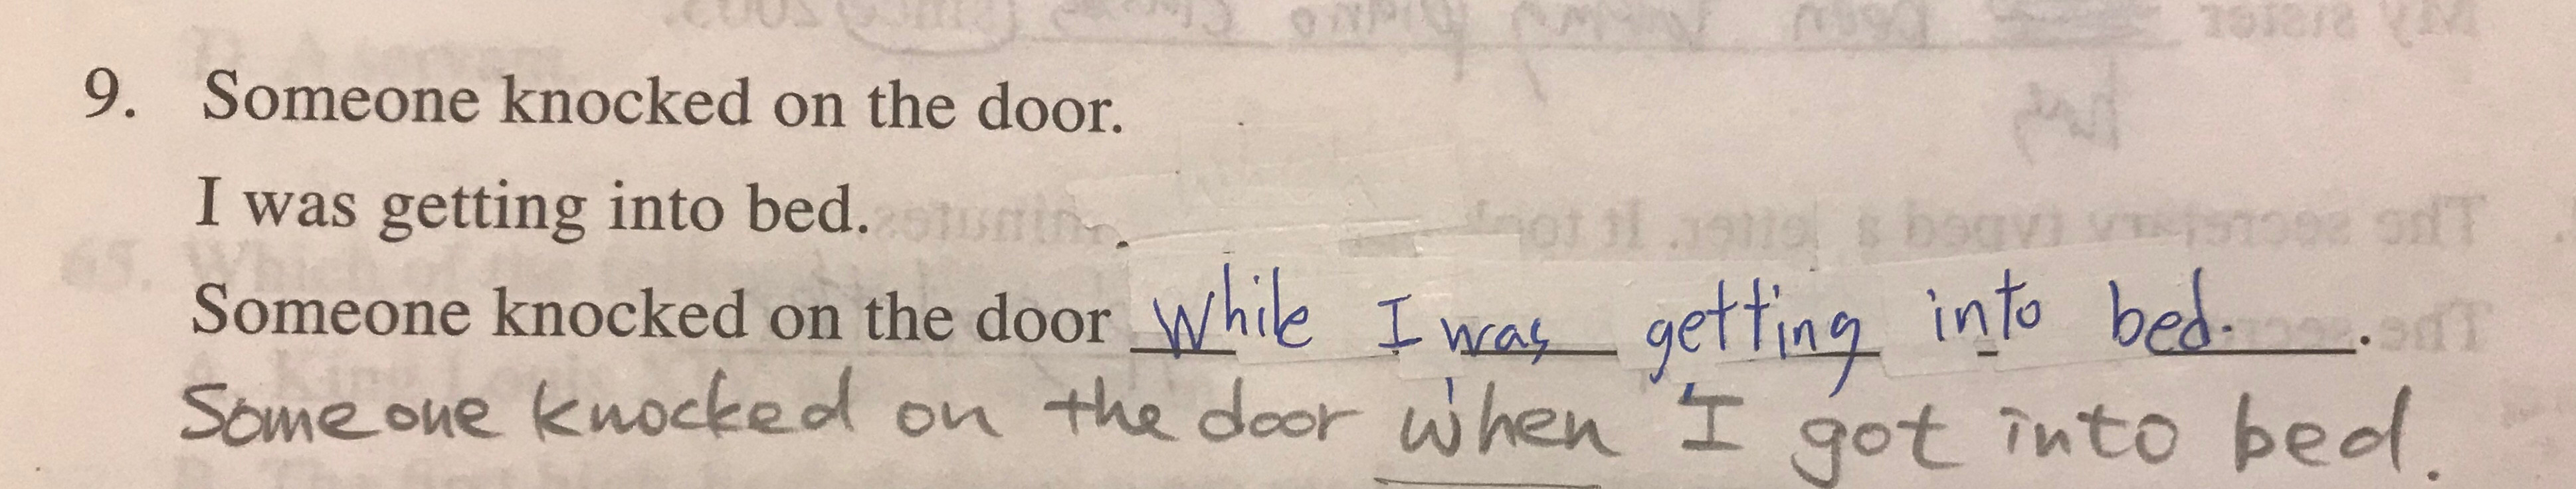 9. Someone knocked on the door.
I was getting into bed.
Someone knocked on the door while I was getting into bed. .
Someone knocked on the door when I got into bed.